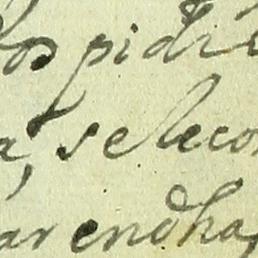 los pidie
a, se lecon
arendha,